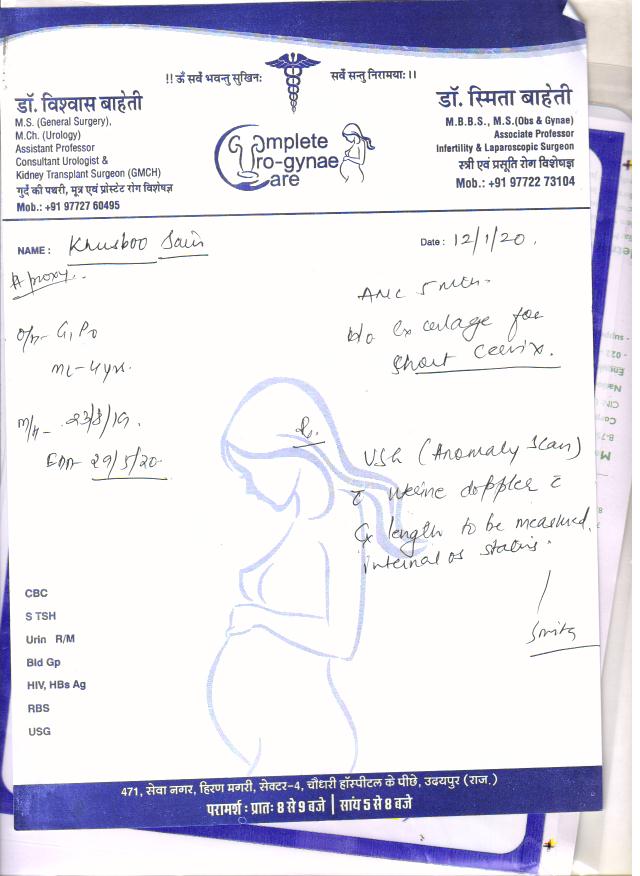 !! ॐ सर्वे भवन्तु सुखिनः सर्वे सन्तु निरामयाः ।।
डॉ. विश्वास बाहेती
M.S. (General Surgery),
M.Ch. (Urology)
Assistant Professor
Consultant Urologist &
Kidney Transplant Surgeon (GMCH)
गुर्दे की पथरी, मूत्र एवं प्रोस्टेट रोग विशेषज्ञ
Mob.: +91 97727 60495
Complete
Uro-gynae
Care
डॉ. स्मिता बाहेती
M.B.B.S., M.S.(Obs & Gynae)
Associate Professor
Infertility & Laparoscopic Surgeon
स्त्री एवं प्रसूति रोग विशेषज्ञ
Mob.: +91 97722 73104
NAME : Khusboo Jain
Date : 12/1/20.
ANC 5 mth.
h/o Cx cerlage for
short Cervix.
O/H- G1P0
ML- 4 yrs.
M/H- 23/8/19.
EDD- 29/5/20
USG (Anomaly Scan)
c uterine doppler c
Cx length to be measured.
internal os status.
Smita
CBC
S TSH
Urin R/M
Bld Gp
HIV, HBs Ag
RBS
USG
471, सेवा नगर, हिरण मगरी, सेक्टर-4, चौधरी हॉस्पीटल के पीछे, उदयपुर (राज.)
परामर्श : प्रातः 8 से 9 बजे | सांय 5 से 8 बजे